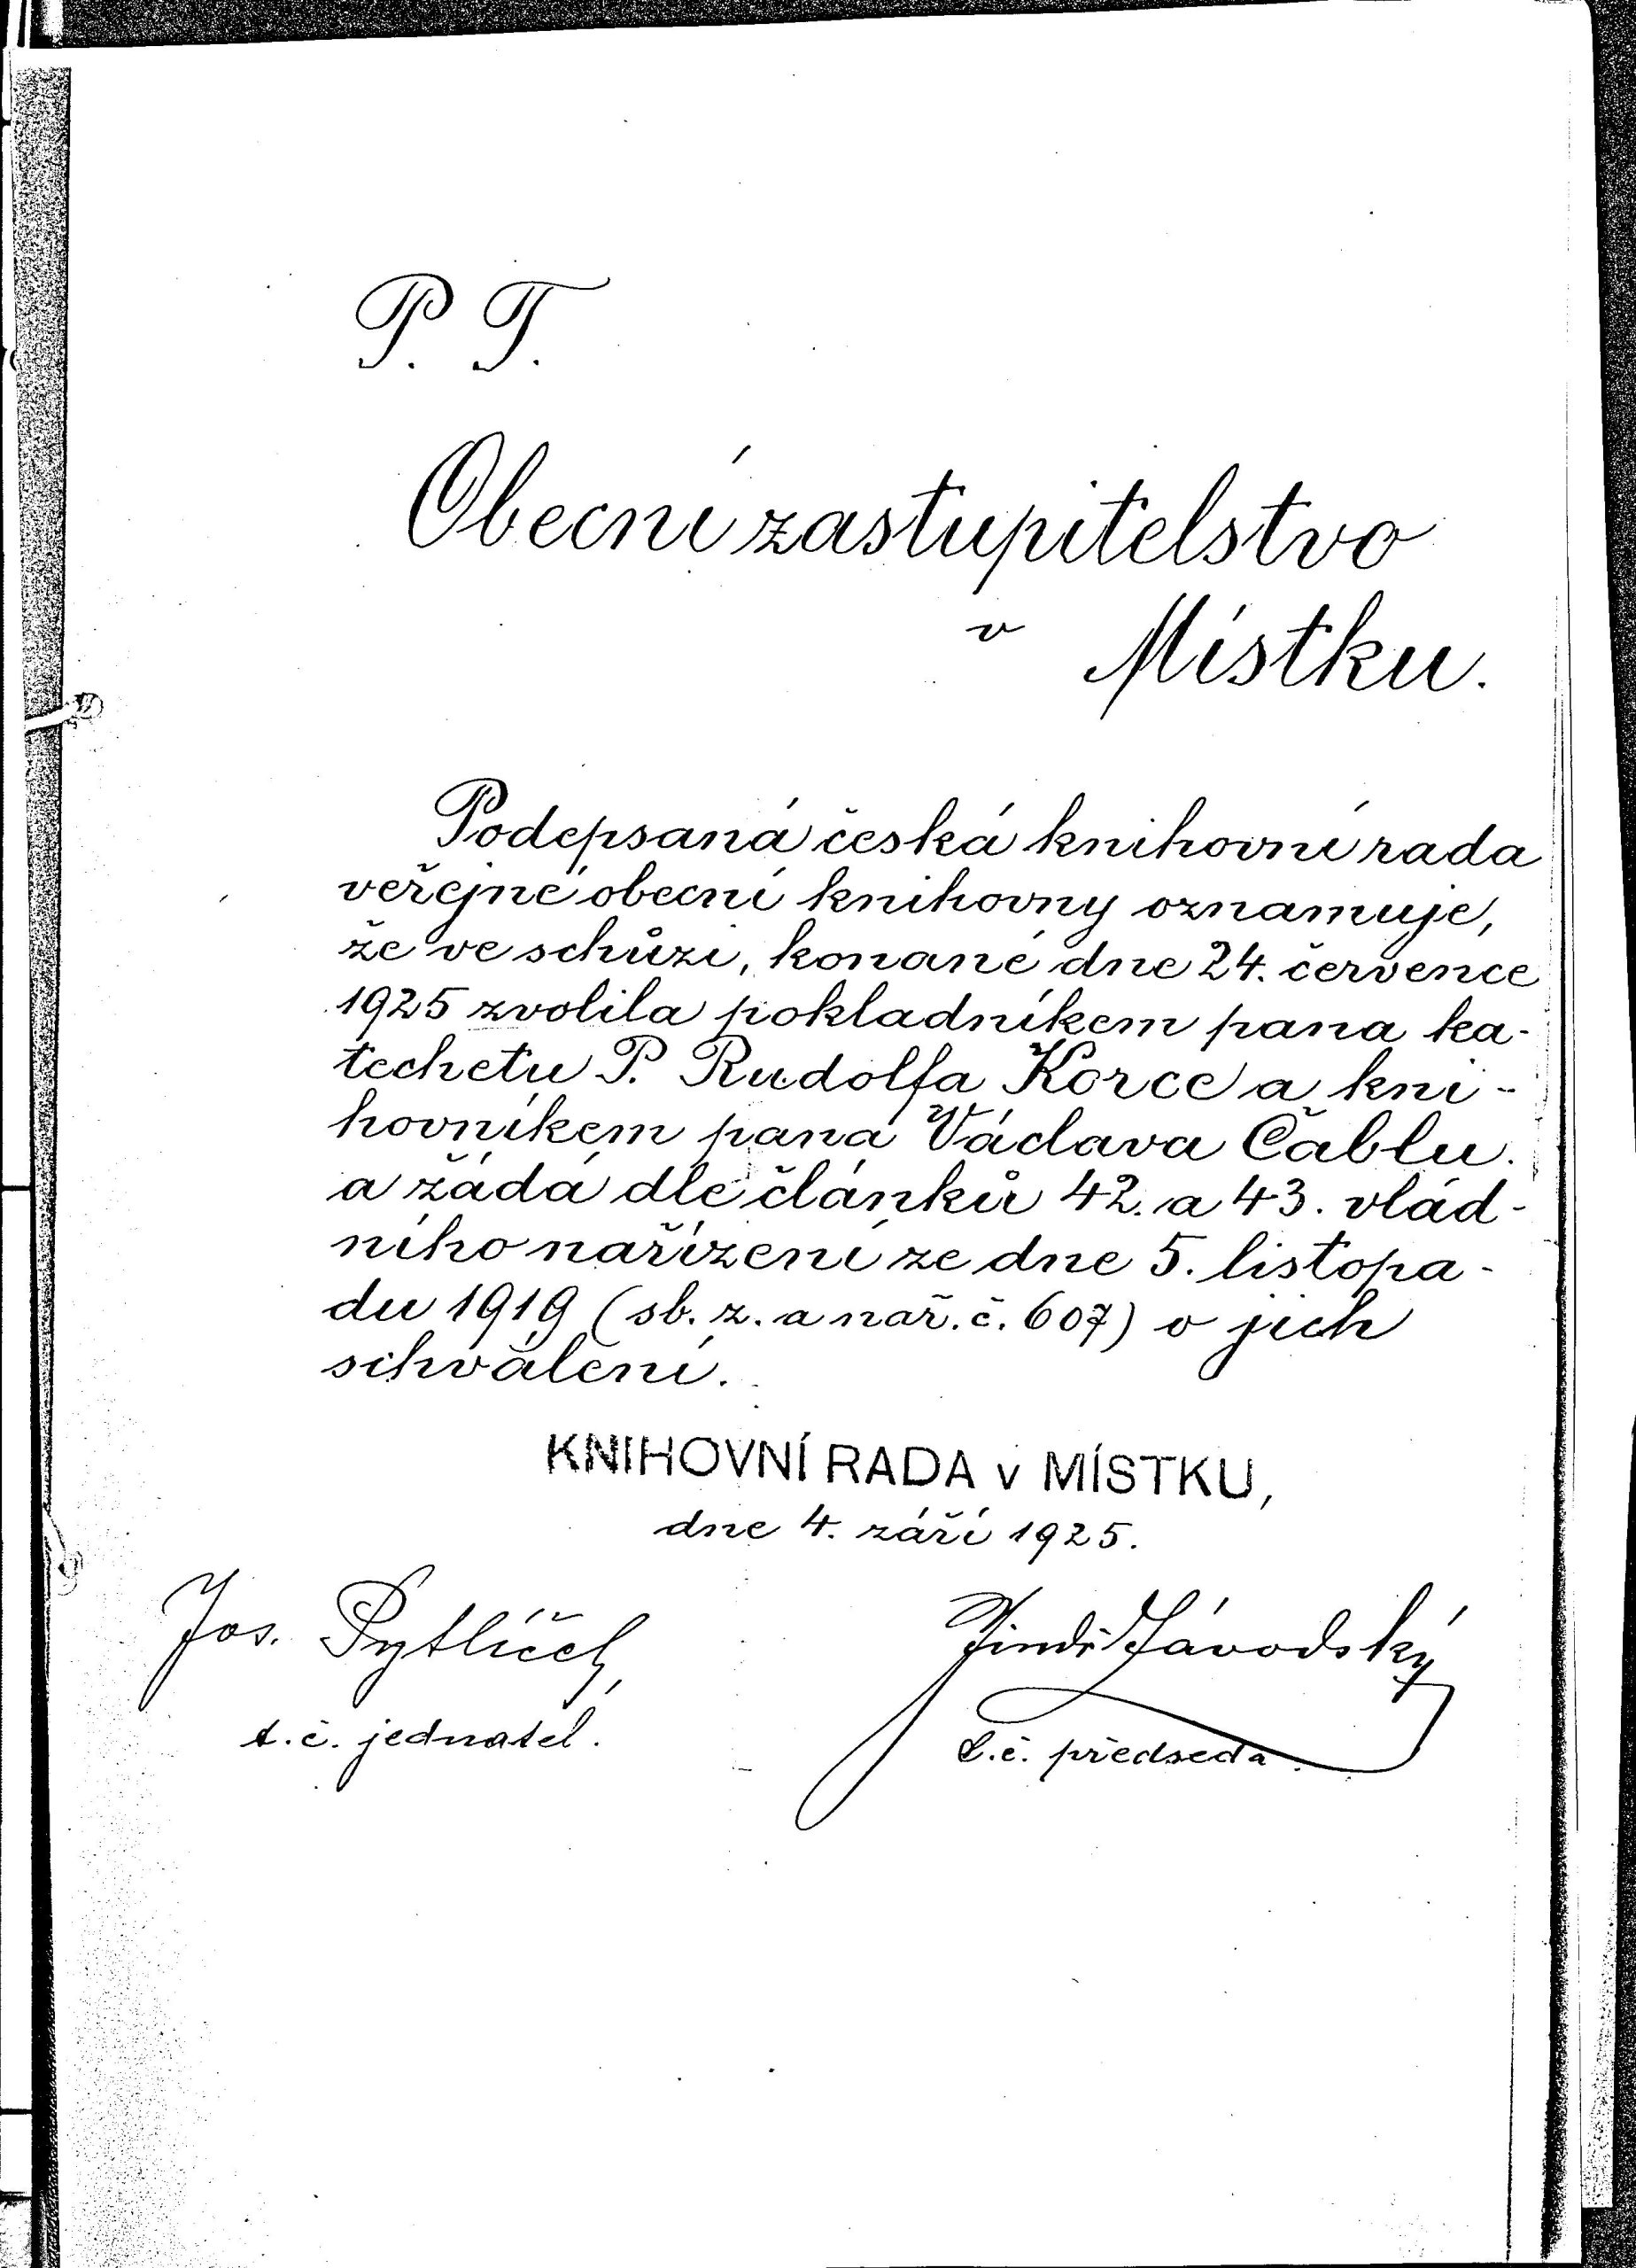 P. T.
Obecní zastupitelstvo
v Místku.
Podepsaná česká knihovní rada
veřejné obecní knihovny oznamuje,
že ve schůzi, konané dne 24. července
1925 zvolila pokladníkem pana ka-
techetu P. Rudolfa Korce a kni-
hovníkem pana Václava Čablu
a žádá dle článků 42. a 43. vlád-
ního nařízení ze dne 5. listopa-
du 1919 (sb. z. a nař. č. 607) o jich
schválení.
KNIHOVNÍ RADA v MÍSTKU,
dne 4. září 1925.
Jos. Pytlíček Jindř Závodský
t.č. jednatel. t.č. předseda.